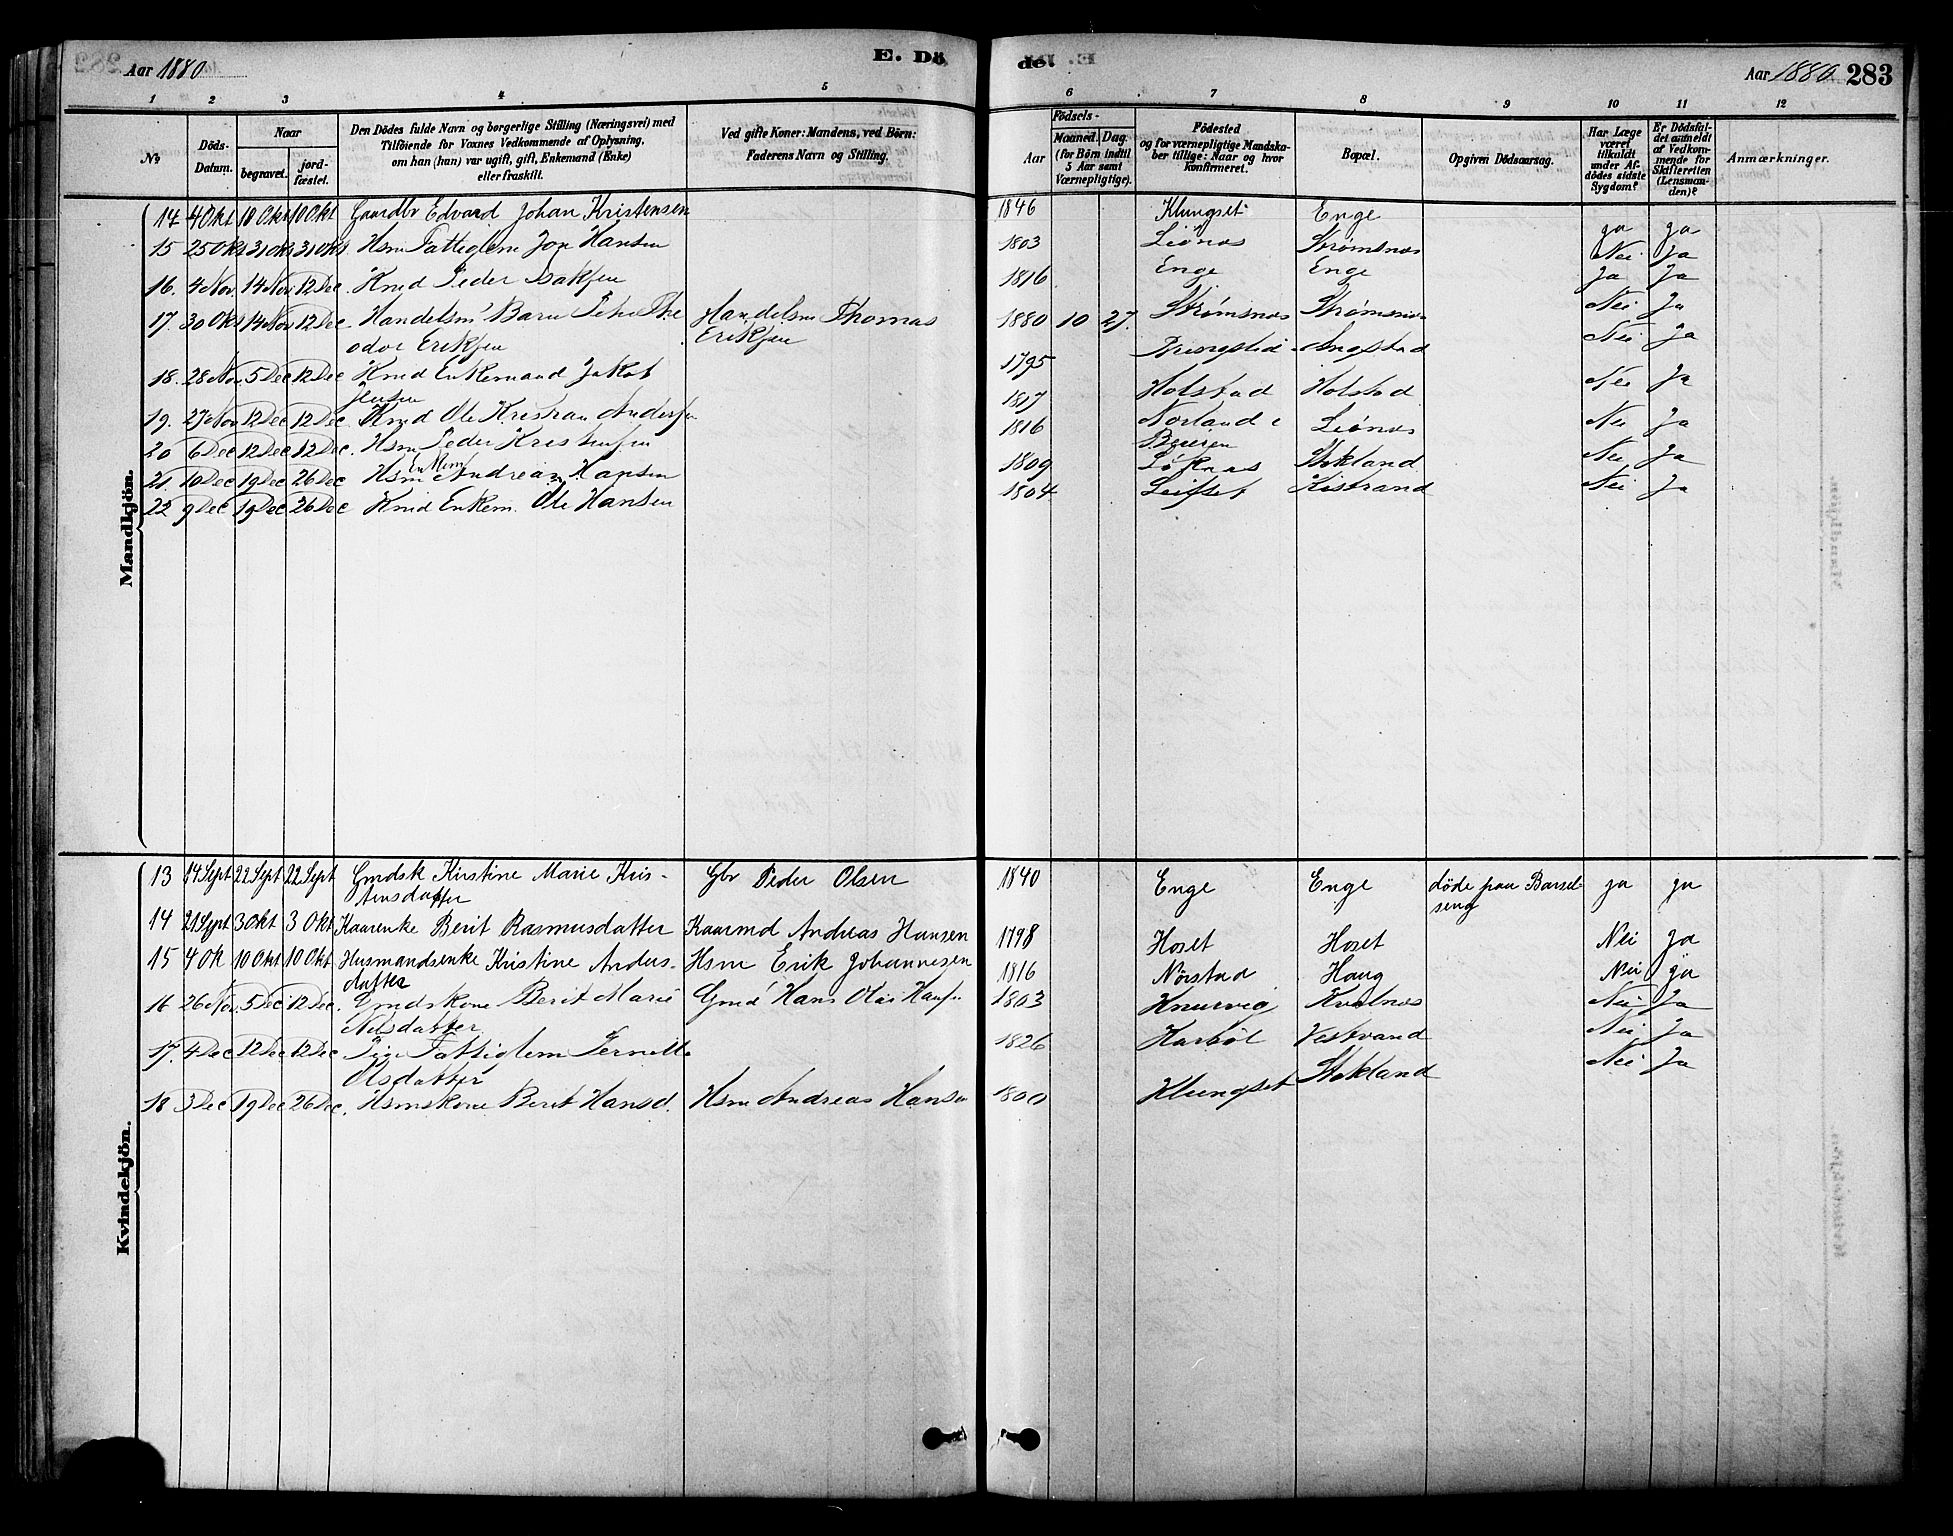 Aar 1880 E. Dö
de. Aar 1880 283
1 2 3 4 5 6 7 8 9 10 11 12
No
Döds-Datum.
Naar
begravet.
jord-fæstet.
Den Dödes fulde Navn og borgerlige Stilling (Næringsvei) med
Tilföiende for Voxnes Vedkommende af Oplysning,
om han (hun) var ugift, gift, Enkemand (Enke)
eller fraskilt.
Ved gifte Koner: Mandens, ved Börn:
Faderens Navn og Stilling.
Födsels-
Aar
Maaned. Dag.
(for Börn indtil
5 Aar samt
Værnepligtige).
Födested
og for værnepligtige Mandska-
ber tillige: Naar og hvor
konfirmeret.
Bopæl.
Opgiven Dödsaarsag.
Har Læge
været
tilkaldt
under Af-
dödes sidste
Sygdom?
Er Dödsfal-
det anmeldt
af Vedkom-
mende for
Skifteretten
(Lensman-
den)?
Anmærkninger.
Mandkjön.
14 4 Okt 10 Okt 10 Okt Gaardbr Edvard Johan Kristensen 1846 Klungset Enge ja ja
15 25 Okt 31 Okt 31 Okt Hsm Fattiglem Jon Hansen 1803 Leiönæs Strømsnæs Nei Ja
16. 4 Nov. 14 Nov 12 Dec. Kmd Peder Isaksen 1816 Enge Enge Ja Ja
17. 30 Okt 14 Nov 12 Dec. Handelsm' Barn Peter The Handelsm Thomas 1880 10 27. Strømsnæs Strømsnæs Nei Ja
odor Eriksen Eriksen
18. 28 Nov. 5 Dec 12 Dec. Kmd Enkemand Jakob 1795 Angstad Nei Ja
Jensen
19. 27 Nov 12 Dec 12 Dec. Kmd Ole Kristian Anders 1817 Holstad Holstad Nei Ja
20 6 Dec 12 Dec 12 Dec. Hsm Peder Kristensen 1816 Norland i Leiönæs Nei Ja
Beieren
21. 10 Dec 19 Dec 26 Dec Hsm Enkem Andreas Hansen 1809 Løknæs Stokland Nei Ja
22 9 Dec 19 Dec 26 Dec Kmd Enkem. Ole Hansen 1804 Leifset Kistrand Nei Ja
Kvindekjön.
13 14 Sept 22 Sept 22 Sept Gmdsk Kirstine Marie Kris- Gbr Peder Olsen 1840 Enge Enge döde paa Barsel ja ja
tensdatter seng
14 21 Sept 3 Okt 3 Okt Kaarenke Berit Rasmusdatter Kaarmd Andreas Hansen 1798 Hoset Hoset Nei Ja
15 4 Ok 10 Okt 10 Okt Husmandsenke Kristine Anders- Hsm Erik Johannesen 1816 Nørstad Haug Nei ja
datter
16 26 Nov. 5 Dec 12 Dec. Gmdskone Berit Marie Gmd Hans Olai Hans 1803 Knurvig Kvalnæs Nei Ja
Nilsdatter
17. 4 Dec 12 Dec 12 Dec Pige Fattiglem Pernille 1826 Karbøl Vestvand Nei Ja
Olsdatter
18 3 Dec 19 Dec 26 Dec. Hsmskone Berit Hansd. Hsm Andreas Hansen 1800 Klungset Stokland Nei Ja